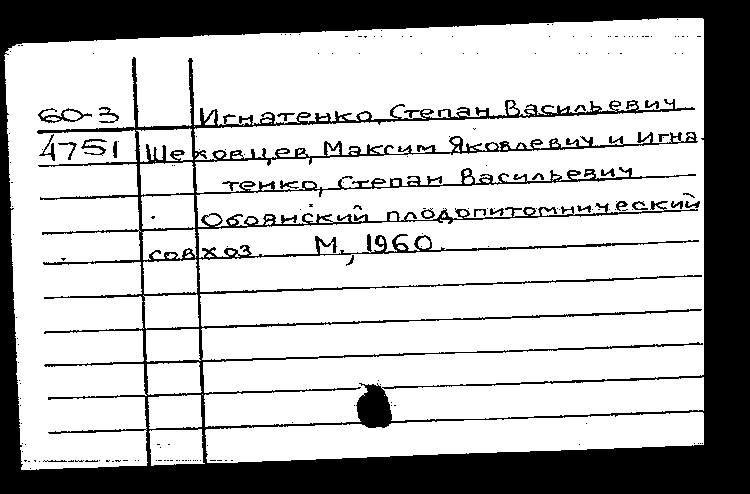 60-3 Игнатенко, Степан Васильевич
4751 Шеховцев, Максим Яковлевич и Игна-
тенко, Степан Васильевич
Обоянский плодопитомнический
совхоз. М., 1960.